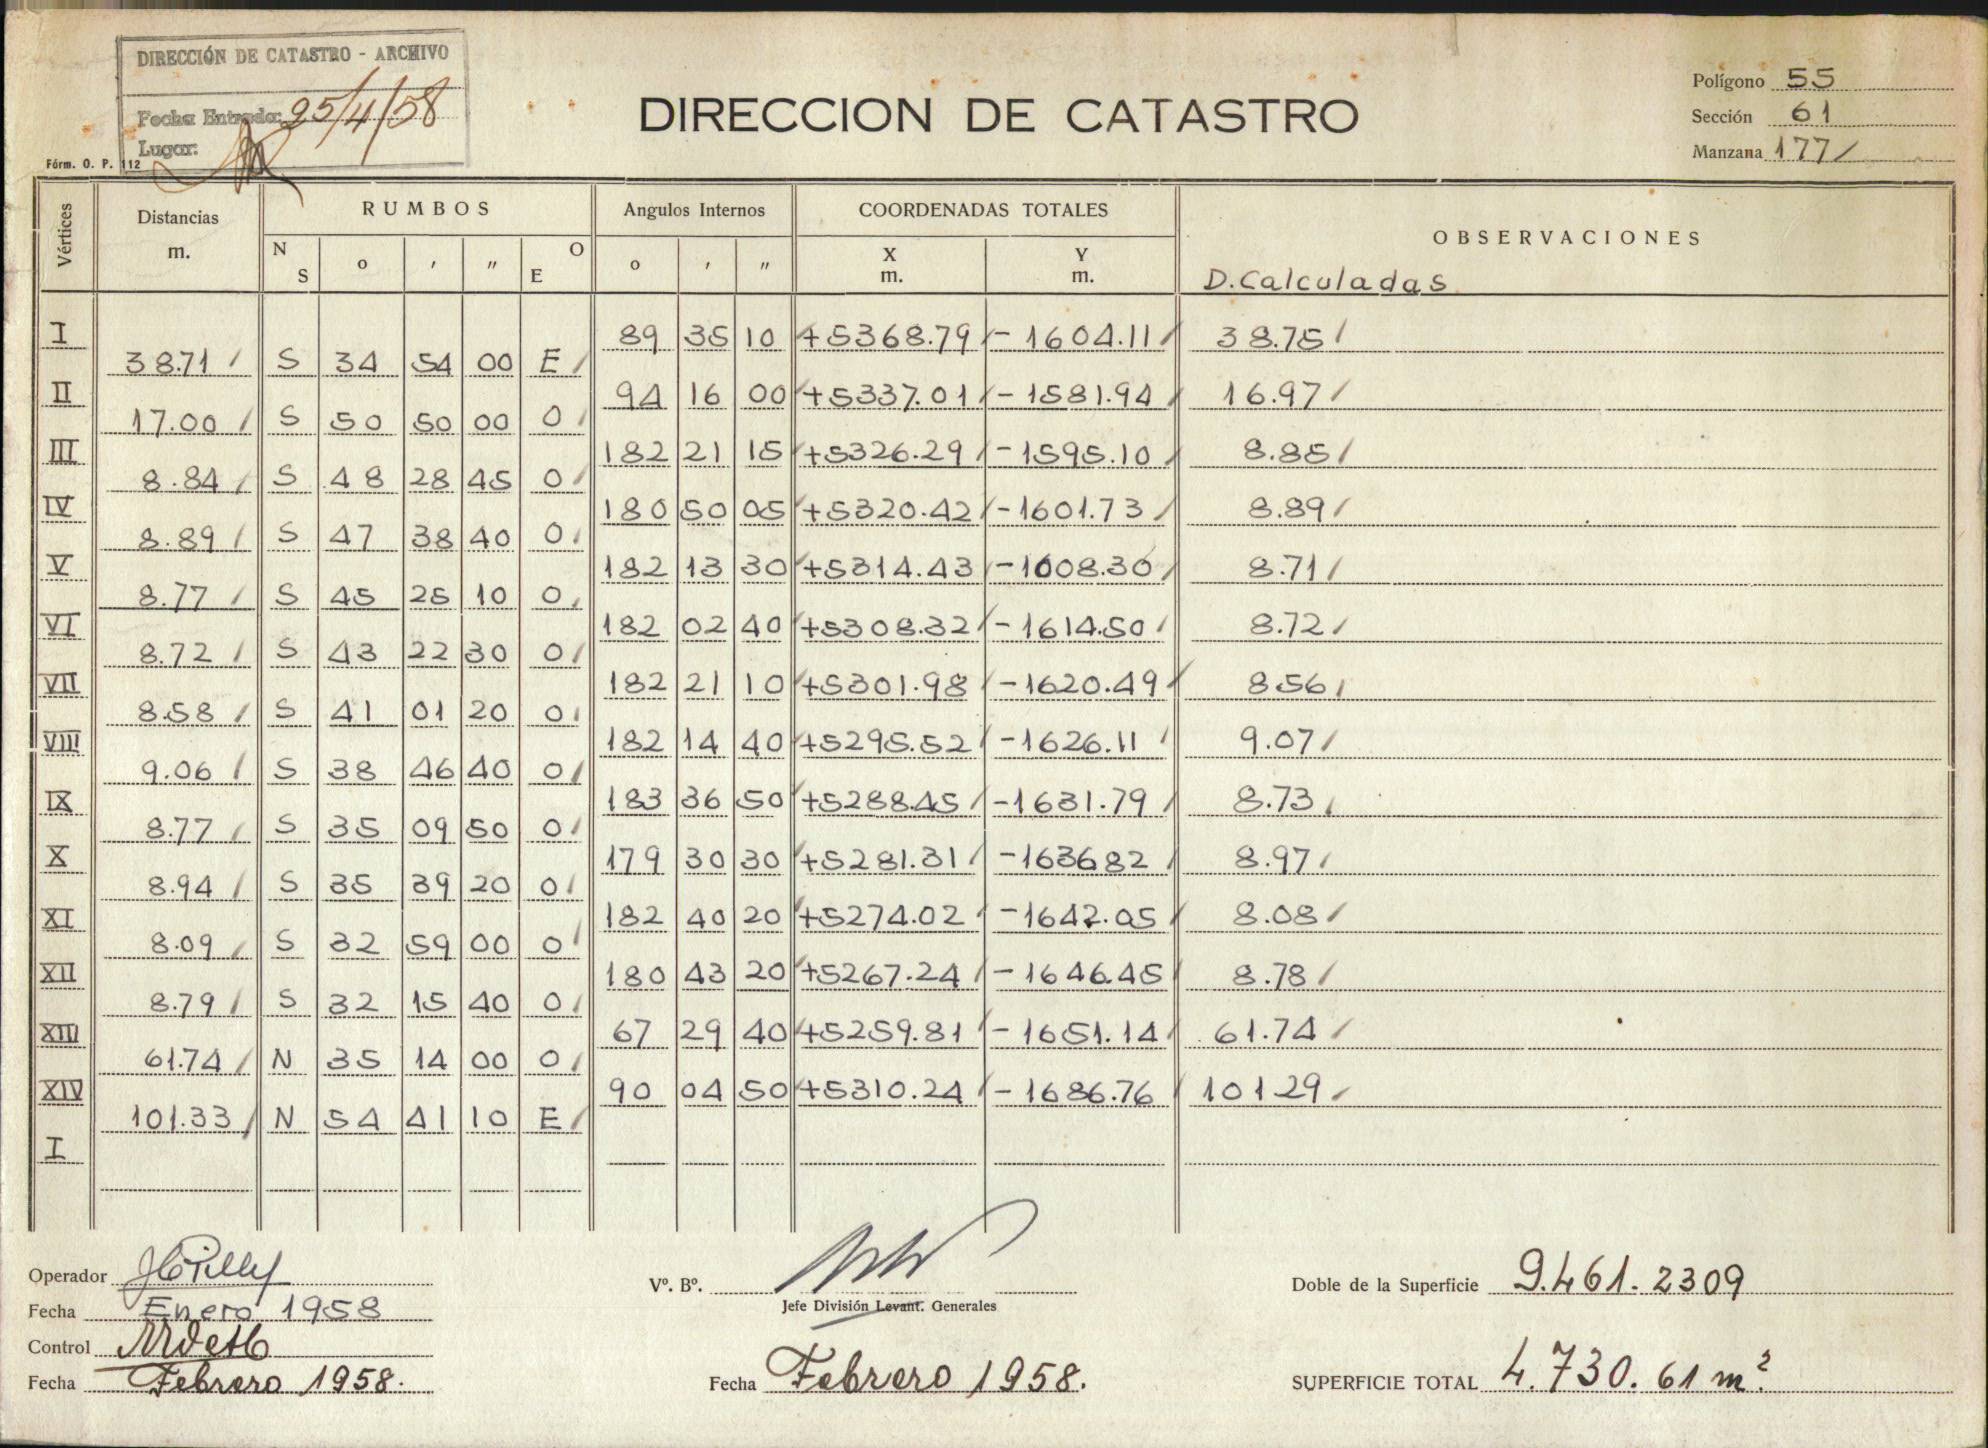 DIRECCIÓN DE CATASTRO - ARCHIVO
Fecha Entrada: 25/4/58
Lugar:
Fórm. O. P. 112
DIRECCION DE CATASTRO
Polígono 55
Sección 61
Manzana 177/
Vértices Distancias m. RUMBOS Angulos Internos COORDENADAS TOTALES OBSERVACIONES
N S o ' " O E o ' " X m. Y m. D. Calculadas
I 89 35 10 +5368.79/ -1604.11/ 38.75/
38.71/ S 34 54 00 E/
II 94 16 00 +5337.01/ -1581.94/ 16.97/
17.00/ S 50 50 00 O/
III 182 21 15 +5326.29/ -1595.10/ 8.85/
8.84/ S 48 28 45 O/
IV 180 50 05 +5320.42/ -1601.73/ 8.89/
8.89/ S 47 38 40 O/
V 182 13 30 +5314.43/ -1608.30/ 8.71/
8.77/ S 45 25 10 O/
VI 182 02 40 +5308.32/ -1614.50/ 8.72/
8.72/ S 43 22 30 O/
VII 182 21 10 +5301.98/ -1620.49/ 8.56/
8.58/ S 41 01 20 O/
VIII 182 14 40 +5295.52/ -1626.11/ 9.07/
9.06/ S 38 46 40 O/
IX 183 36 50 +5288.45/ -1631.79/ 8.73/
8.77/ S 35 09 50 O/
X 179 30 30 +5281.31/ -163682/ 8.97/
8.94/ S 35 39 20 O/
XI 182 40 20 +5274.02/ -1642.05/ 8.08/
8.09/ S 32 59 00 O/
XII 180 43 20 +5267.24/ -1646.45/ 8.78/
8.79/ S 32 15 40 O/
XIII 67 29 40 +5259.81/ -1651.14/ 61.74/
61.74/ N 35 14 00 O/
XIV 90 04 50 +5310.24/ -1686.76/ 10129/
101.33/ N 54 41 10 E/
I
Operador
Fecha Enero 1958
Control
Fecha Febrero 1958.
Vº. Bº.
Jefe División Levant. Generales
Fecha Febrero 1958.
Doble de la Superficie 9.461.2309
SUPERFICIE TOTAL 4.730.61 m².